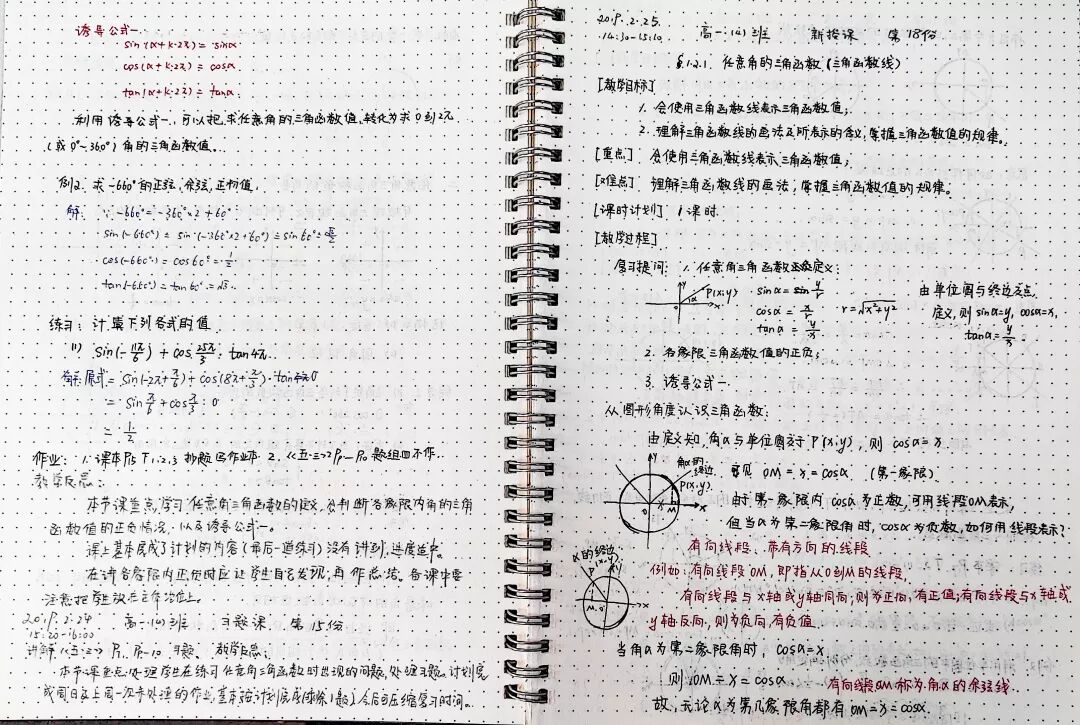 诱导公式一.
sin(α+k·2π)=sinα
cos(α+k·2π)=cosα
tan(α+k·2π)=tanα.
利用诱导公式一,可以把求任意角的三角函数值,转化为求0到2π
(或0°~360°)角的三角函数值。
例2.求-660°的正弦,余弦,正切值.
解: ∵-660°=-360°×2+60°
sin(-660°)=sin(-360°×2+60°)=sin60°=√3/2
cos(-660°)=cos60°=1/2
tan(-660°)=tan60°=√3.
练习:计算下列各式的值
(1) sin(-11π/6)+cos 25π/3·tan4π.
解:原式=sin(-2π+π/6)+cos(8π+π/3)·tan4π 0
=sin π/6+cos π/3·0
=1/2
作业: 1.课本P15 T1.2.3 抄题写作业本 2.《五·三》P7-P10 题组四不作.
教学反思:
本节课重点,学习任意角三角函数的定义,及判断各象限内角的三角
函数值的正负情况,以及诱导公式一。
课上基本完成了计划的内容(最后一道练习)没有讲到,进度适中。
在讲各象限内正负时应让学生自己发现,再作总结。备课中要
注意把学生放在主体地位上。
2019.2.24 高一(4)班 习题课 第15份
15:20-16:00
讲解《五·三》 习题. 教学反思:
本节课重点处理学生在练习任意角三角函数时出现的问题,处理习题,计划完
成周日晚上周一次中处理的作业,基本按计划完成 今后可压缩复习时间。
2019.2.25.
14:30-15:10. 高一(4)班 新授课 第18份
§1.2.1.任意角的三角函数(三角函数线)
[教学目标]
1.会使用三角函数线表示三角函数值;
2.理解三角函数线的画法及所表示的含义,掌握三角函数值的规律。
[重点] 会使用三角函数线表示三角函数值;
[难点] 理解三角函数线的画法,掌握三角函数值的规律。
[课时计划] 1课时.
[教学过程]
复习提问: 1.任意角三角函数 定义:
y P(x,y) α 0 x
sinα= y/r
cosα= x/r r=√x²+y²
tanα= y/x
由单位圆与终边交点
定义,则sinα=y,cosα=x,
tanα=y/x.
2.各象限三角函数值的正负;
3.诱导公式一.
从图形角度认识三角函数:
由定义知,角α与单位圆交于P(x,y),则cosα=x.
y 角α的终边 P(x,y) 0 M x
可见 OM=x=cosα (第一象限)
由于第一象限内cosα为正数,可用线段OM表示,
但当α为第二象限角时,cosα为负数,如何用线段表示?
有向线段:带有方向的线段
α的终边 P(x,y) y M 0 x
例如:有向线段OM,即指从O到M的线段,
有向线段与x轴或y轴同向,则为正向,有正值;有向线段与x轴或
y轴反向,则为负向,有负值
当角α为第二象限角时,cosα=x
则OM=x=cosα 有向线段OM称为角α的余弦线.
故,无论α为第几象限角都有OM=x=cosx.